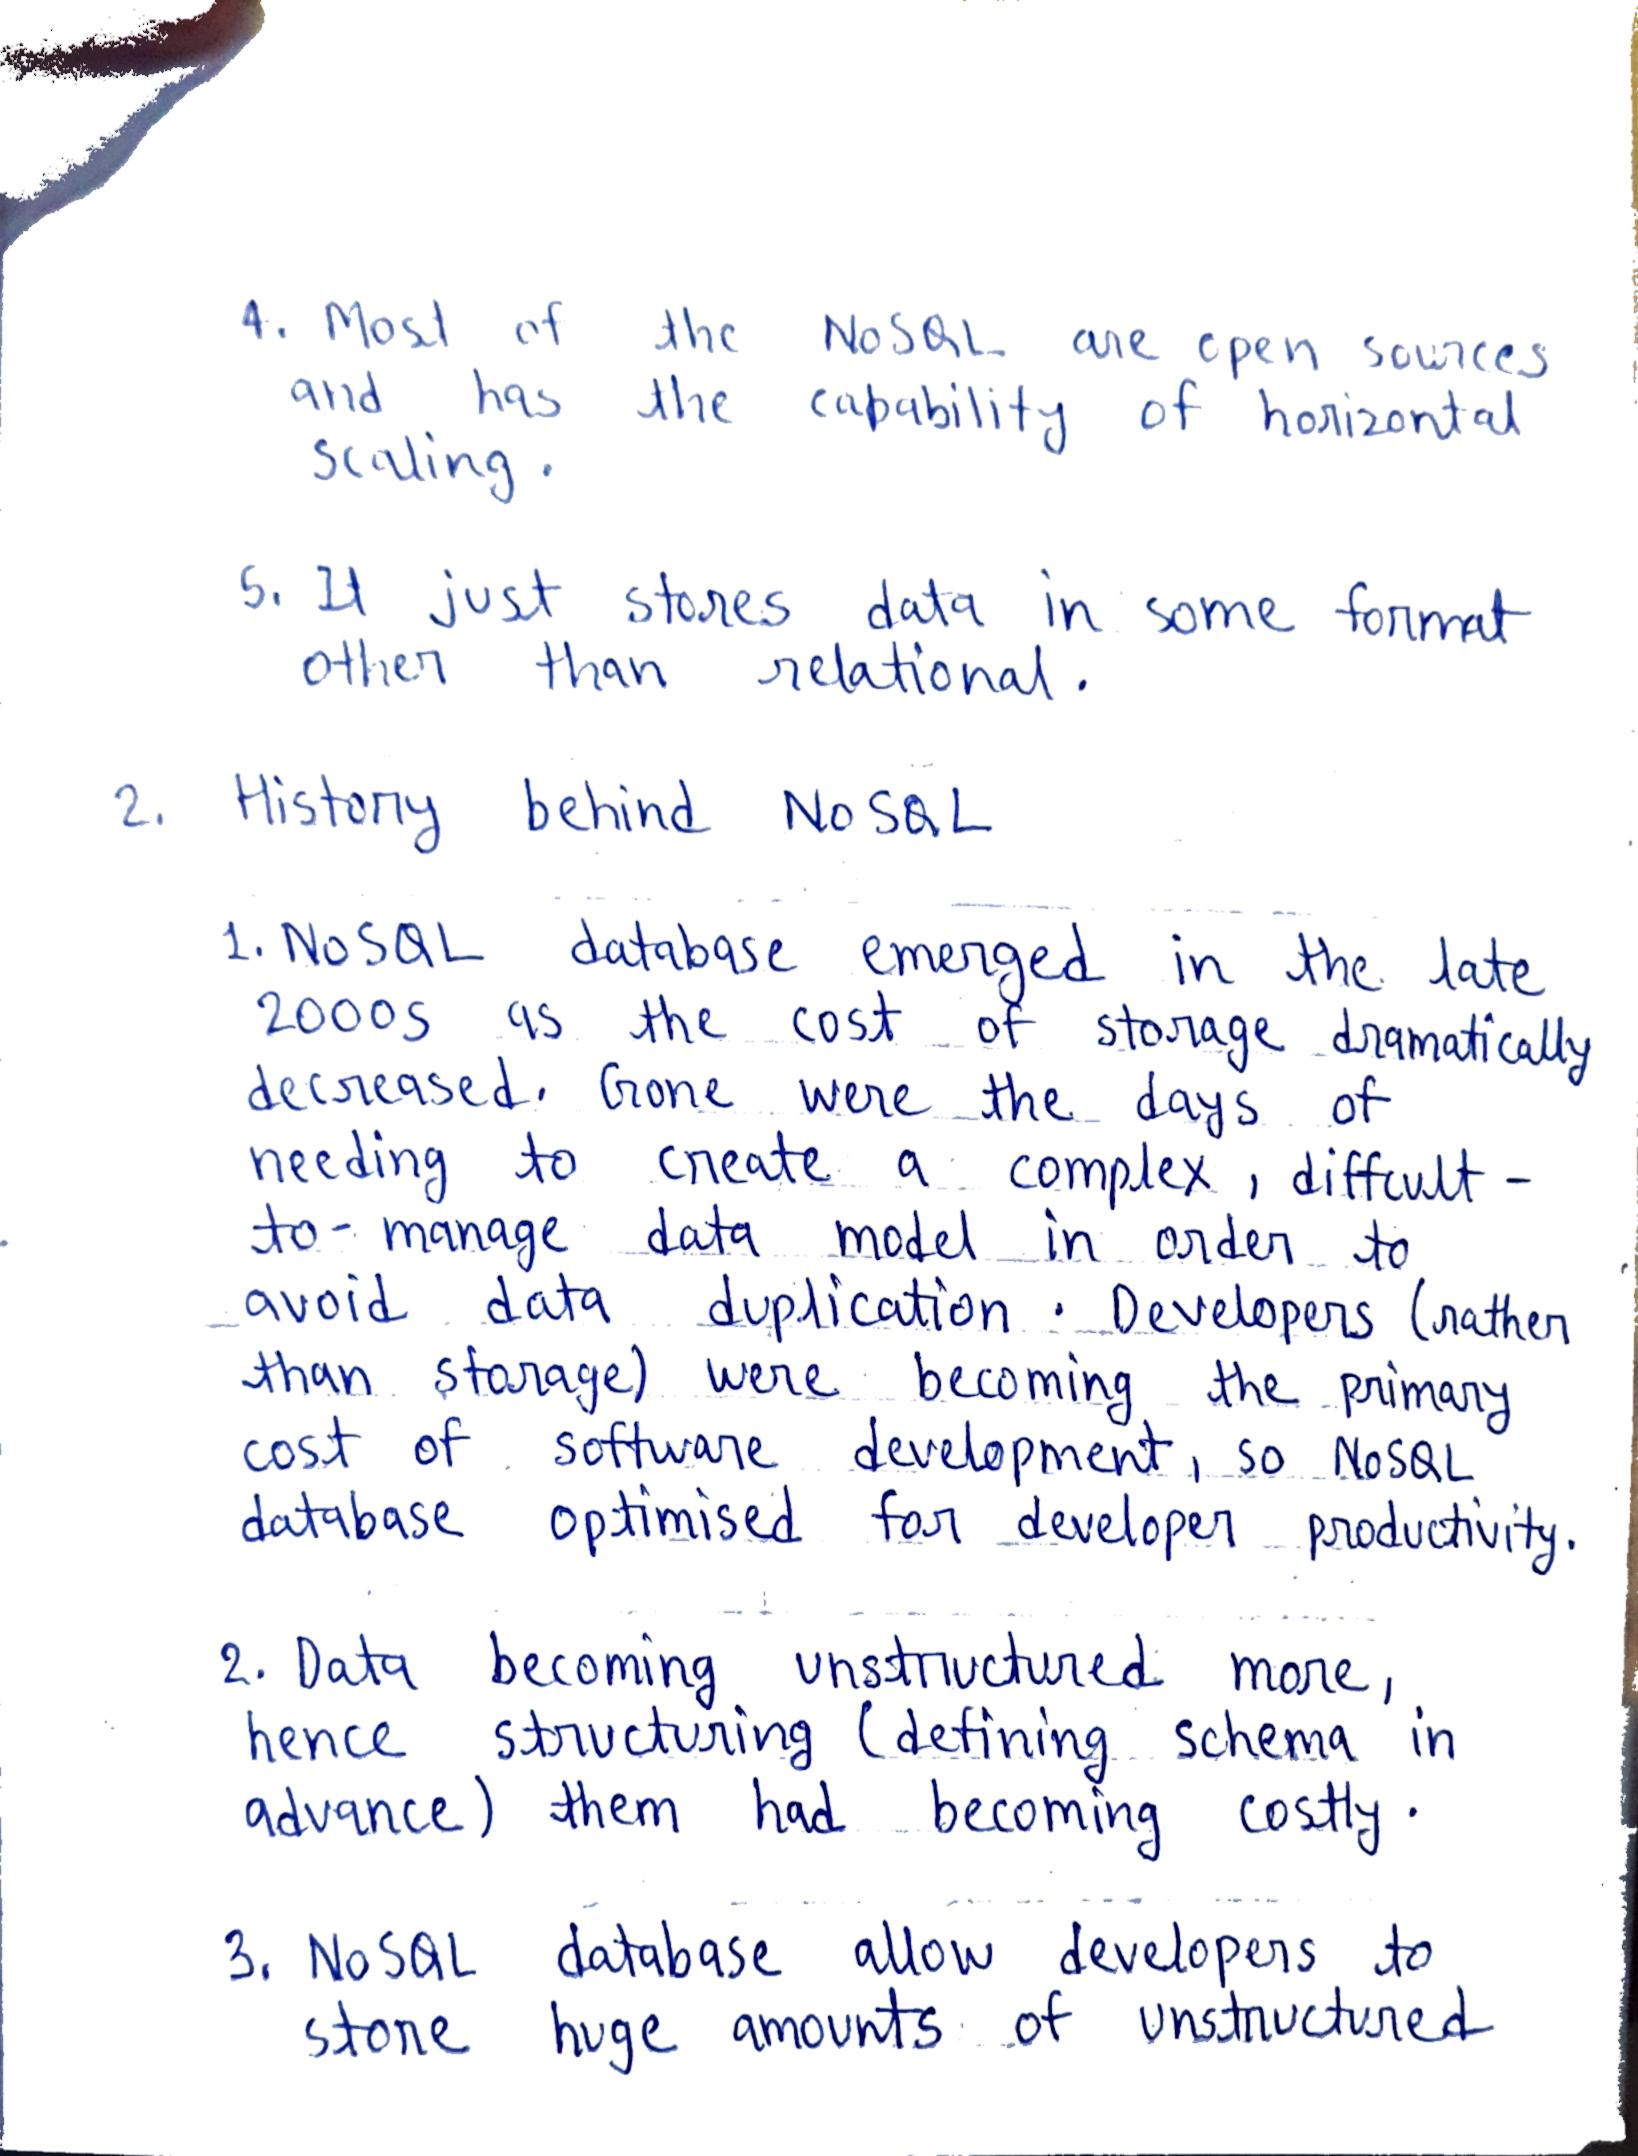 4. Most of the NoSQL are open sources
and has the capability of horizontal
scaling.
5. It just stores data in some format
other than relational.
2. History behind NoSQL
1. NoSQL database emerged in the late
2000s as the cost of storage dramatically
decreased. Gone were the days of
needing to create a complex, diffcult-
to-manage data model in order to
avoid data duplication. Developers (rather
than storage) were becoming the primary
cost of software development, so NoSQL
database optimised for developer productivity.
2. Data becoming unstructured more,
hence structuring (defining schema in
advance) them had becoming costly.
3. NoSQL database allow developers to
store huge amounts of unstructured